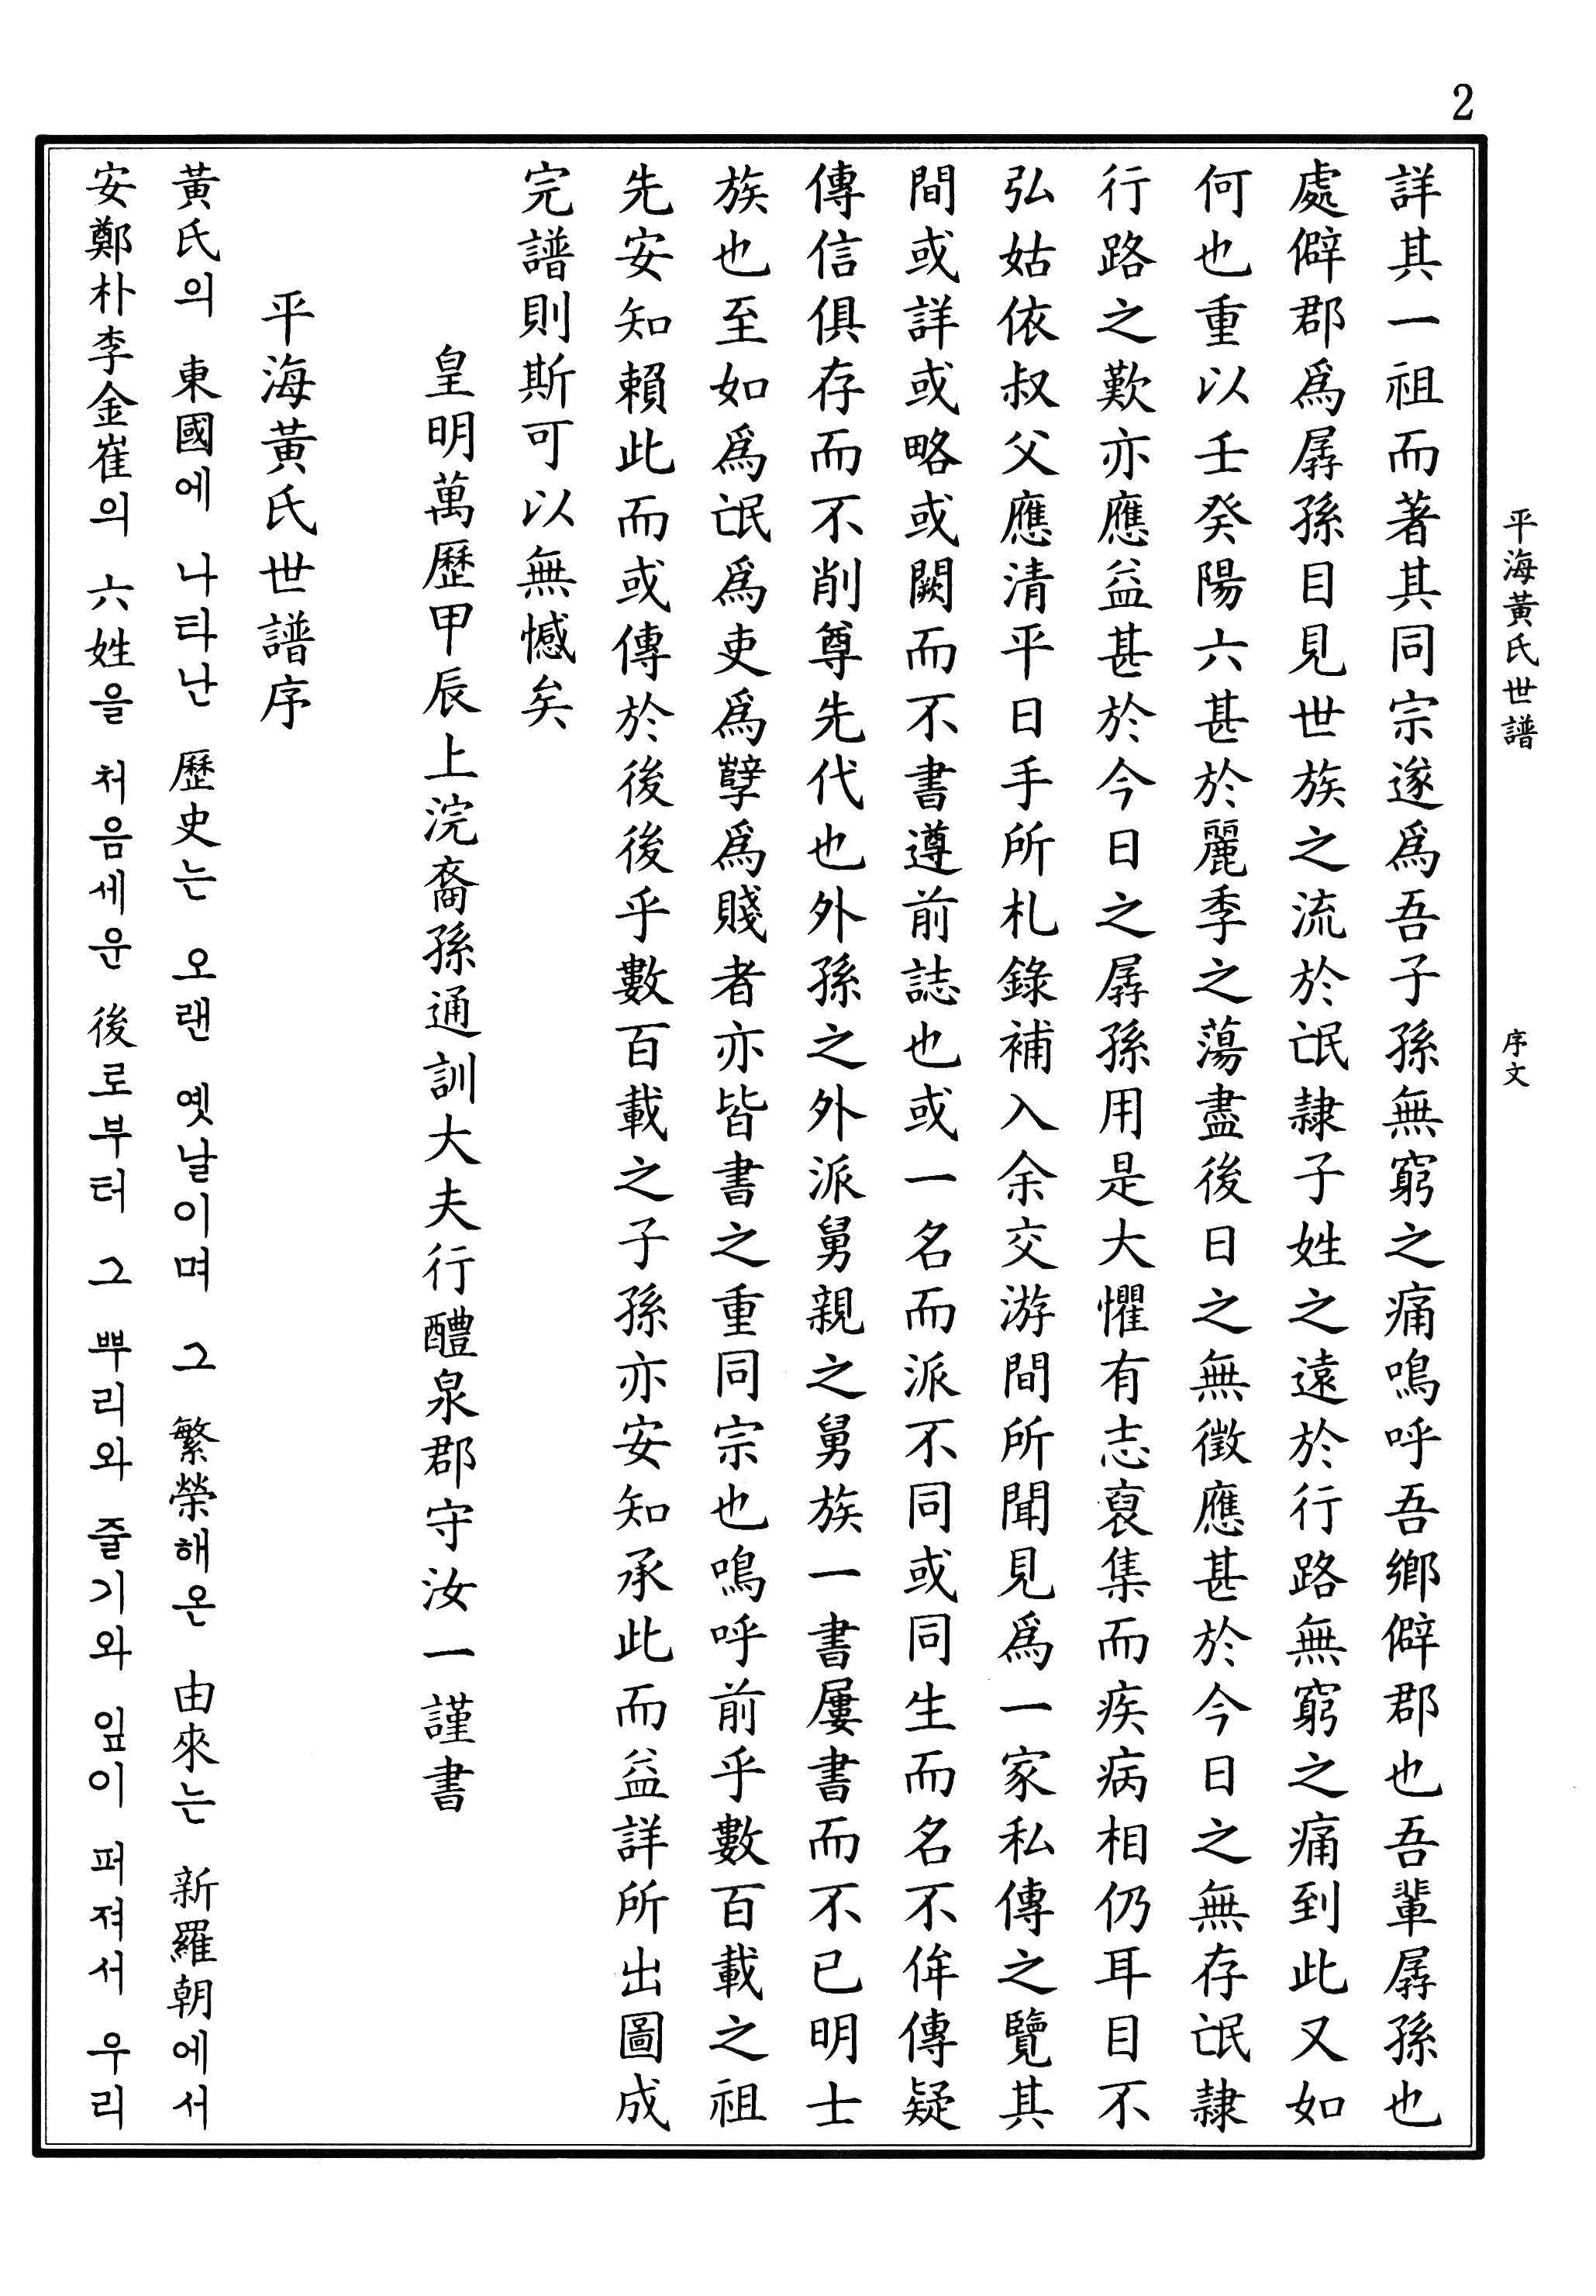 2
平海黃氏世譜 序文
詳其一祖而著其同宗遂爲吾子孫無窮之痛鳴呼吾鄉僻郡也吾輩孱孫也
處僻郡爲孱孫目見世族之流於氓隷子姓之遠於行路無窮之痛到此又如
何也重以壬癸陽六甚於麗季之蕩盡後日之無徵應甚於今日之無存氓隷
行路之歎亦應益甚於今日之孱孫用是大懼有志裒集而疾病相仍耳目不
弘姑依叔父應清平日手所札錄補入余交游間所聞見爲一家私傳之覽其
間或詳或略或闕而不書遵前誌也或一名而派不同或同生而名不侔傳疑
傳信俱存而不削尊先代也外孫之外派舅親之舅族一書屢書而不已明士
族也至如爲氓爲吏爲孼爲賤者亦皆書之重同宗也鳴呼前乎數百載之祖
先安知賴此而或傳於後後乎數百載之子孫亦安知承此而益詳所出圖成
完譜則斯可以無憾矣
皇明萬歷甲辰上浣裔孫通訓大夫行醴泉郡守汝一謹書
平海黃氏世譜序
黃氏의 東國에 나타난 歷史는 오랜 옛날이며 그 繁榮해온 由來는 新羅朝에서
安鄭朴李金崔의 六姓을 처음세운 後로부터 그 뿌리와 줄기와 잎이 퍼져서 우리